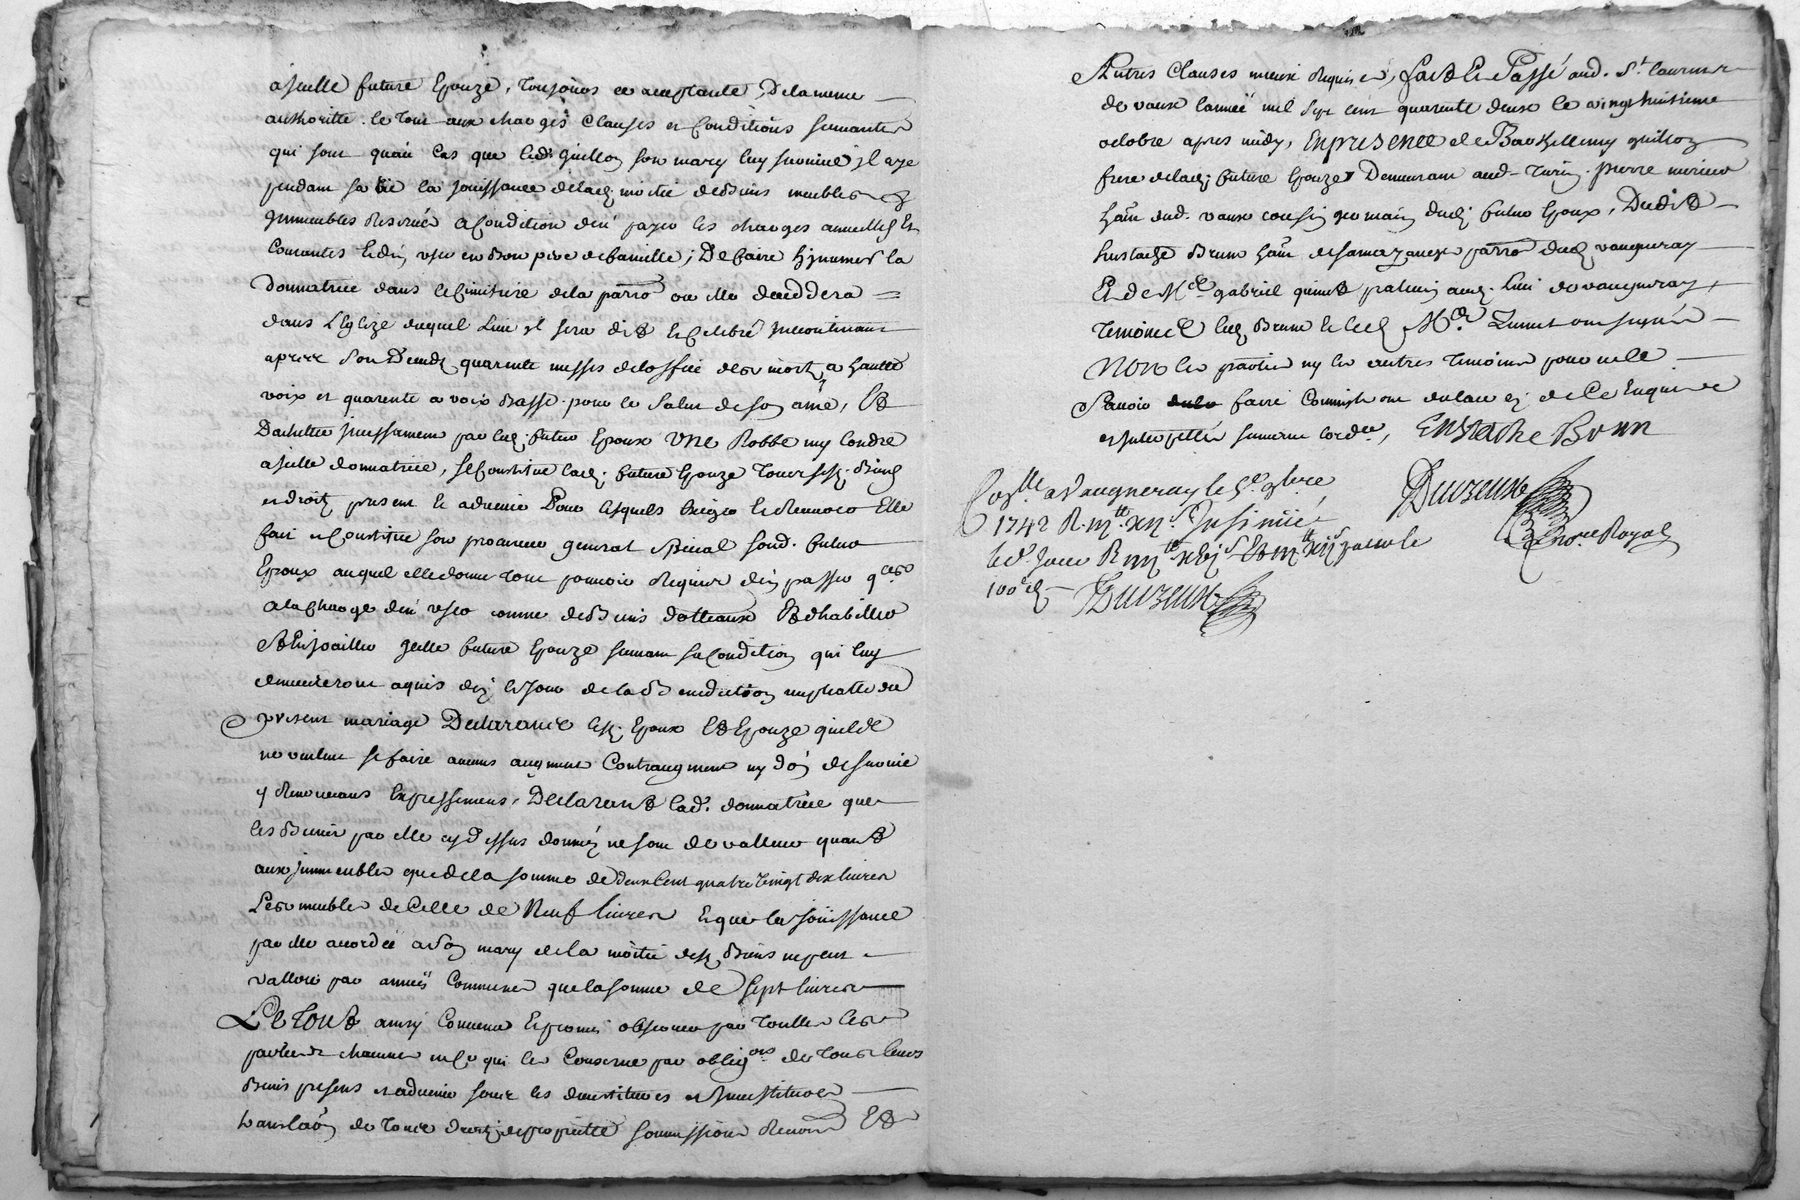 a jcelle future Epouze, Toujours ce acceptante, De la meme
authoritté le tout aux charges Clauses et Conditions suivantes
qui sont qu'au cas que led. Guillon son mary luy survive jl aye
pendant sa vie la jouissance de lad. moitié desd. biens meubles &
jmmeubles Reservée a Condition d'en payer les charges annuelles Et
Courantes Et d'en user en Bon pere de famille; De faire Ejnumer la
Donnatrice dans le Cimitiere de la parro. ou elle deceddera
dans L'Eglize duquel Lieu jl sera dit Et Celebré jncontinant
apres son Deceds quarente messes de l'office des morts a haute
voix et quarente a voix Basse pour le Salut de son ame, Et
D'achetter jncessament par led. futur Epoux Une Robbe
a jcelle donnatrice, se Constitue lad. future Epouze tous sesd. Biens
et droits present et advenir Pour lesquels Exiger Et Renoncer Elle
fait et Constitue son procureur general special sond. futur
Epoux auquel elle donne tout pouvoir Requis d'en passer
a la Charge d'en user comme de Biens dotteaux Et d'habiller
Et Enjoailler jcelle future Epouze suivant sa Condition qui luy
demeureront aquis dez le jour de la Benediction nuptialle du
present mariage Declarants lesd. Epoux Et Epouze qu'ils
ne veulent se faire aucuns augment Contraugment ny don de survie
y Renonceans Expressement, Declarant lad. donnatrice que
les Biens par elle cy Dessus donnés ne sont de valleur quant
aux jmmeubles que de la somme de Deux Cent quatre vingt dix livres
Les meubles de Celle de Neuf livres Et que la joüissance
par elle accordée a son mary de la moitié desd. Biens ne peut
valloir par année Commune que la somme de Sept livres
Le Tout ainsy Convenu Et promis observer par touttes les
parties chacune en ce qui les Conserne par oblig.ons de tous leurs
Biens presens et advenir sous les devestitures et jnvestitures
translaôn de tous droits de proprietté soumissions Renon. Et
Autres Clauses mieux Requises, Fait Et Passé aud. St Laurent
de vaux l'année mil sept cent quarente deux le vingt huitieme
octobre apres midy, En presence de Barthellemy guillon
frere de lad. future Epouze Demeurant aud. Turin pierre
hant. dud. vaux cousin germain dud. futur Epoux, Dudit
Eustache Brun hant. de parro. dud. vaugneray
Et de Me gabriel aud. Lieu de vaugneray
Temoins led. Brun et led. Me ont signés
Non les parties ny les autres Temoins pour ne le
Savoir faire Comme jls ont declaré de Ce Enquis
et jnterpellés suivant l'ord.ce, Eustache Brun
Con.llé a Vaugneray le 5e 9bre
1742 R. jnsinué
led. jour R
100e d.
no.re Royal